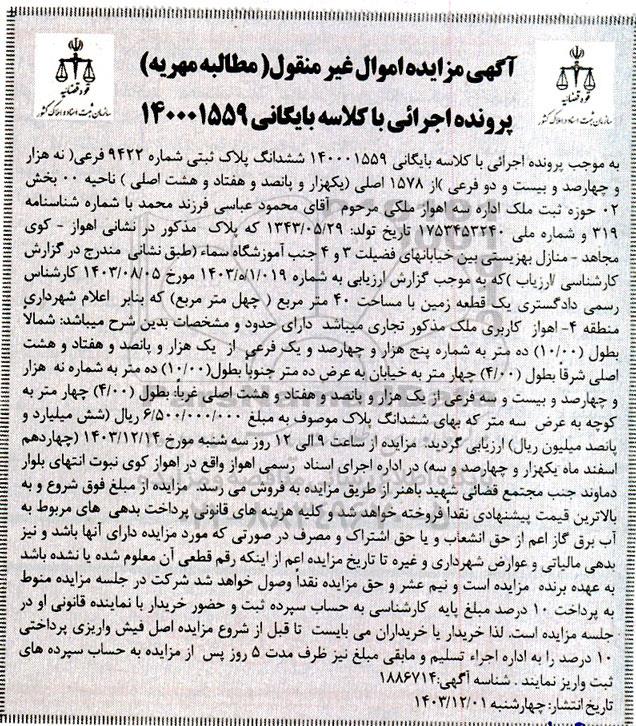 قوه قضائیه
سازمان ثبت اسناد و املاک کشور
قوه قضائیه
سازمان ثبت اسناد و املاک کشور
آگهی مزایده اموال غیر منقول( مطالبه مهریه)
پرونده اجرائی با کلاسه بایگانی ۱۴۰۰۰۱۵۵۹
به موجب پرونده اجرائی با کلاسه بایگانی ۱۴۰۰۰۱۵۵۹ ششدانگ پلاک ثبتی شماره ۹۴۲۲ فرعی( نه هزار
و چهارصد و بیست و دو فرعی )از ۱۵۷۸ اصلی (یکهزار و پانصد و هفتاد و هشت اصلی ) ناحیه ۰۰ بخش
۰۲ حوزه ثبت ملک اداره سه اهواز ملکی مرحوم آقای محمود عباسی فرزند محمد با شماره شناسنامه
۳۱۹ و شماره ملی ۱۷۵۳۴۵۳۲۴۰ تاریخ تولد: ۱۳۴۳/۰۵/۲۹ که پلاک مذکور در نشانی اهواز - کوی
مجاهد - منازل بهزیستی بین خیابانهای فضیلت ۳ و ۴ جنب آموزشگاه سماء (طبق نشانی مندرج در گزارش
کارشناسی /ارزیاب )که به موجب گزارش ارزیابی به شماره ۱۴۰۳/ه/۱/۰۱۹ مورخ ۱۴۰۳/۰۸/۰۵ کارشناس
رسمی دادگستری یک قطعه زمین با مساحت ۴۰ متر مربع ( چهل متر مربع) که بنابر اعلام شهرداری
منطقه ۴- اهواز کاربری ملک مذکور تجاری میباشد دارای حدود و مشخصات بدین شرح میباشد: شمالاً
بطول (۱۰/۰۰) ده متر به شماره پنج هزار و چهارصد و یک فرعی از یک هزار و پانصد و هفتاد و هشت
اصلی شرقاً بطول (۴/۰۰) چهار متر به خیابان به عرض ده متر جنوباً بطول(۱۰/۰۰) ده متر به شماره نه هزار
و چهارصد و بیست و سه فرعی از یک هزار و پانصد و هفتاد و هشت اصلی غرباً: بطول (۴/۰۰) چهار متر به
کوچه به عرض سه متر که بهای ششدانگ پلاک موصوف به مبلغ ۶/۵۰۰/۰۰۰/۰۰۰ ریال (شش میلیارد و
پانصد میلیون ریال) ارزیابی گردید. مزایده از ساعت ۹ الی ۱۲ روز سه شنبه مورخ ۱۴۰۳/۱۲/۱۴ (چهاردهم
اسفند ماه یکهزار و چهارصد و سه) در اداره اجرای اسناد رسمی اهواز واقع در اهواز کوی نبوت انتهای بلوار
دماوند جنب مجتمع قضائی شهید باهنر از طریق مزایده به فروش می رسد. مزایده از مبلغ فوق شروع و به
بالاترین قیمت پیشنهادی نقداً فروخته خواهد شد و کلیه هزینه های قانونی پرداخت بدهی های مربوط به
آب برق گاز اعم از حق انشعاب و یا حق اشتراک و مصرف در صورتی که مورد مزایده دارای آنها باشد و نیز
بدهی مالیاتی و عوارض شهرداری و غیره تا تاریخ مزایده اعم از اینکه رقم قطعی آن معلوم شده یا نشده باشد
به عهده برنده مزایده است و نیم عشر و حق مزایده نقداً وصول خواهد شد شرکت در جلسه مزایده منوط
به پرداخت ۱۰ درصد مبلغ پایه کارشناسی به حساب سپرده ثبت و حضور خریدار با نماینده قانونی او در
جلسه مزایده است. لذا خریدار یا خریداران می بایست تا قبل از شروع مزایده اصل فیش واریزی پرداختی
۱۰ درصد را به اداره اجراء تسلیم و مابقی مبلغ نیز ظرف مدت ۵ روز پس از مزایده به حساب سپرده های
ثبت واریز نمایند . شناسه آگهی:۱۸۸۶۷۱۴
تاریخ انتشار: چهارشنبه ۱۴۰۳/۱۲/۰۱